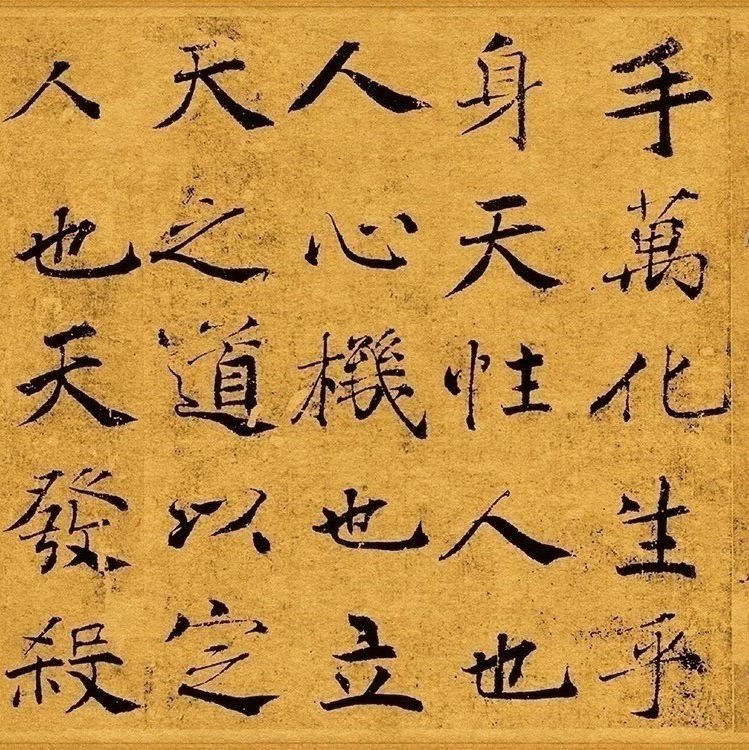 手萬化生乎
身天性人也
人心機也立
天之道以定
人也天發殺